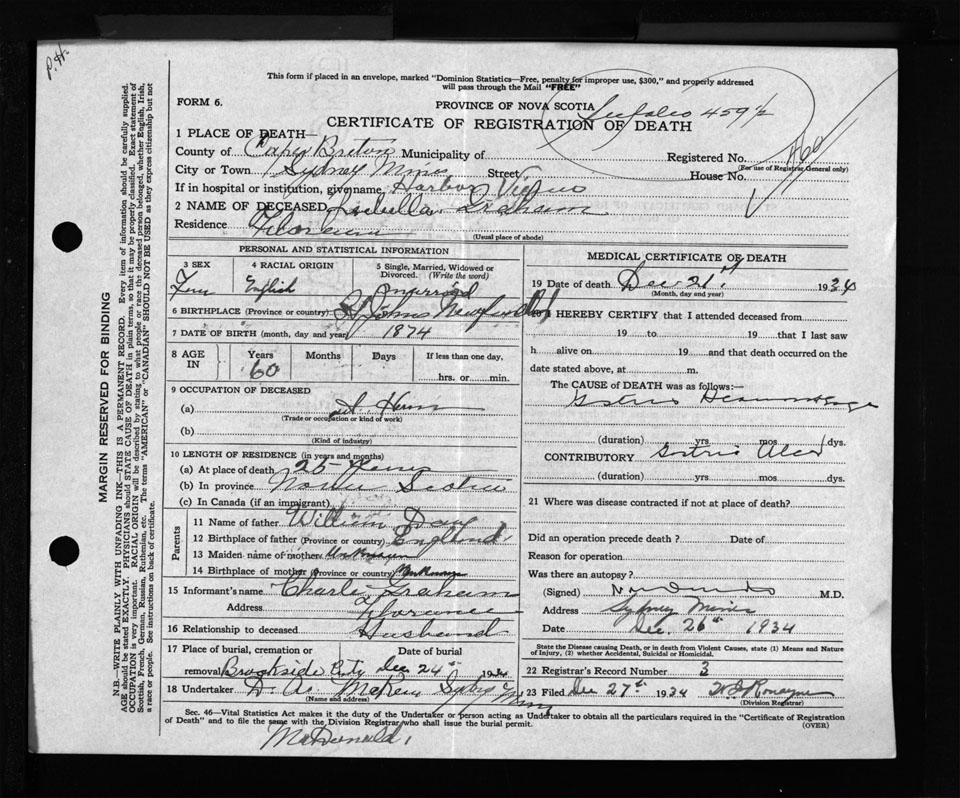 P.H.
This form if placed in an envelope, marked "Dominion Statistics—Free, penalty for improper use, $300," and properly addressed
will pass through the Mail "FREE"
FORM 6.
PROVINCE OF NOVA SCOTIA
459½
CERTIFICATE OF REGISTRATION OF DEATH
1 PLACE OF DEATH—
County of Cape Breton Municipality of Registered No. 460
(For use of Registrar General only)
City or Town Sydney Mines Street House No.
If in hospital or institution, give name, Harbor View
2 NAME OF DECEASED Graham
Residence Florence
(Usual place of abode)
PERSONAL AND STATISTICAL INFORMATION
3 SEX 4 RACIAL ORIGIN 5 Single, Married, Widowed or Divorced. (Write the word)
Fem English married
6 BIRTHPLACE (Province or country) St Johns Newfoundld
7 DATE OF BIRTH (month, day and year) 1874
8 AGE IN Years Months Days If less than one day,
60 hrs. or min.
9 OCCUPATION OF DECEASED
(a) at Home
(Trade or occupation or kind of work)
(b)
(Kind of industry)
10 LENGTH OF RESIDENCE (in years and months)
(a) At place of death 25 Years
(b) In province Nova Scotia
(c) In Canada (if an immigrant)
Parents
11 Name of father William
12 Birthplace of father England
13 Maiden name of mother Unknown
14 Birthplace of mother (Province or country) Unknown
15 Informant's name Charles Graham
Address Florence
16 Relationship to deceased Husband
17 Place of burial, cremation or removal Date of burial
Brookside Dec 24th 1934
18 Undertaker D. A. Sydney Mines
(Name and address)
MEDICAL CERTIFICATE OF DEATH
19 Date of death Dec 21st 1934
(Month, day and year)
20 I HEREBY CERTIFY that I attended deceased from
19 to 19 that I last saw
h alive on 19 and that death occurred on the
date stated above, at m.
The CAUSE of DEATH was as follows:—
Gastric
(duration) yrs mos dys.
CONTRIBUTORY Gastric Ulcer
(duration) yrs mos dys.
21 Where was disease contracted if not at place of death?
Did an operation precede death? Date of
Reason for operation
Was there an autopsy?
(Signed) M.D.
Address Sydney Mines
Date Dec. 26th 1934
State the Disease causing Death, or in death from Violent Causes, state (1) Means and Nature
of Injury, (2) whether Accidental, Suicidal or Homicidal.
22 Registrar's Record Number 3
23 Filed Dec 27th 1934
(Division Registrar)
Sec. 46—Vital Statistics Act makes it the duty of the Undertaker or person acting as Undertaker to obtain all the particulars required in the "Certificate of Registration
of Death" and to file the same with the Division Registrar who shall issue the burial permit. (OVER)
McDonald,
MARGIN RESERVED FOR BINDING
N.B.—WRITE PLAINLY WITH UNFADING INK—THIS IS A PERMANENT RECORD. Every item of information should be carefully supplied.
AGE should be stated EXACTLY. PHYSICIANS should STATE CAUSE OF DEATH in plain terms, so that it may be properly classified. Exact statement of
OCCUPATION is very important. RACIAL ORIGIN will be described by stating to what people or race the deceased person belonged, whether English, Irish,
Scottish, French, German, Russian, Ruthenian, etc. The terms "AMERICAN" or "CANADIAN" SHOULD NOT BE USED as they express citizenship but not
a race or people. See instructions on back of certificate.